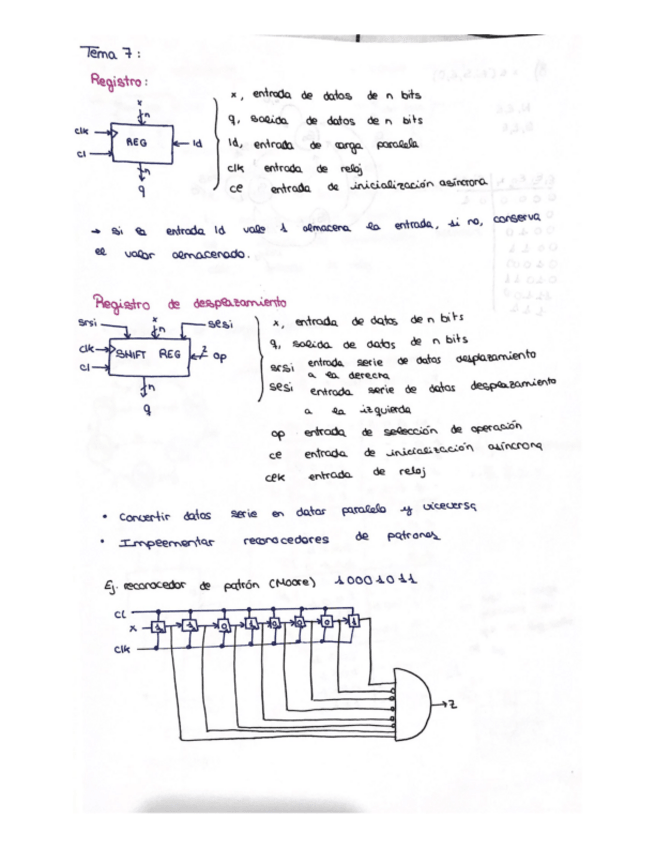 Tema 7:
Registro:
x
n
clk
cl
REG
ld
n
q
x, entrada de datos de n bits
q, salida de datos de n bits
ld, entrada de carga paralela
clk entrada de reloj
cl entrada de inicialización asíncrona
→ si la entrada ld vale 1 almacena la entrada, si no, conserva
el valor almacenado.
Registro de desplazamiento
srsi
x
n
sesi
clk
cl
SHIFT REG
2
op
n
q
x, entrada de datos de n bits
q, salida de datos de n bits
srsi entrada serie de datos desplazamiento
a la derecha
sesi entrada serie de datos desplazamiento
a la izquierda
op entrada de selección de operación
cl entrada de inicialización asíncrona
clk entrada de reloj
• Convertir datos serie en datos paralelo y viceversa
• Implementar reconocedores de patrones
Ej. reconocedor de patrón (Moore) 10001011
CL
x
1 1 0 1 0 0 0 1
clk
z